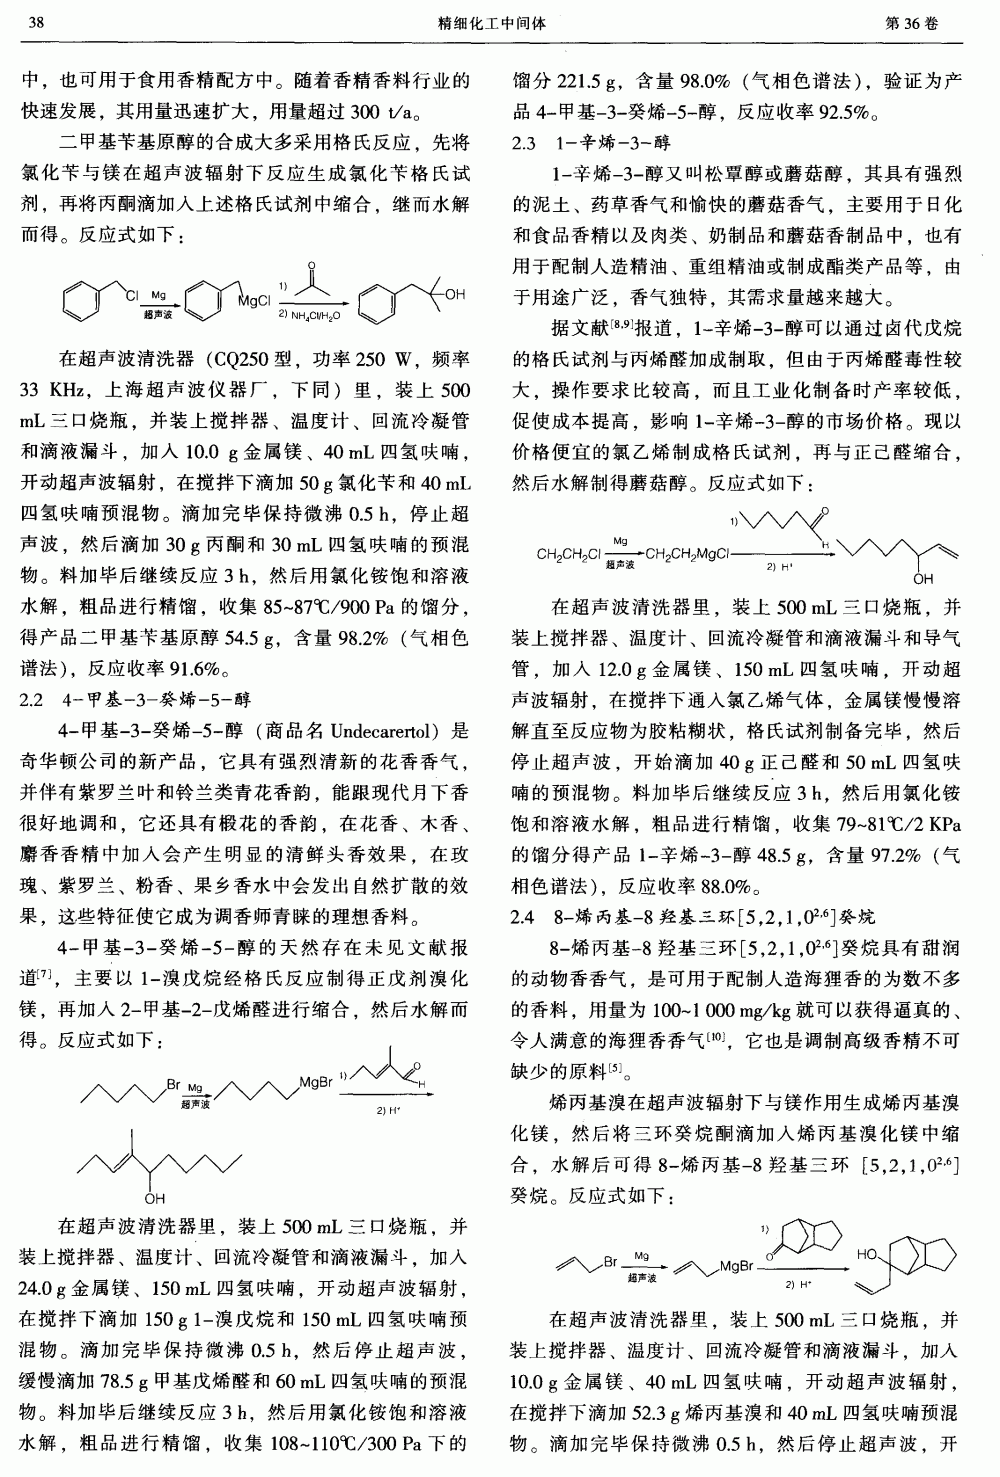 38
精细化工中间体
第 36 卷
中，也可用于食用香精配方中。随着香精香料行业的
快速发展，其用量迅速扩大，用量超过 300 t/a。
二甲基苄基原醇的合成大多采用格氏反应，先将
氯化苄与镁在超声波辐射下反应生成氯化苄格氏试
剂，再将丙酮滴加入上述格氏试剂中缩合，继而水解
而得。反应式如下：
Cl Mg 超声波 MgCl 1) O 2) NH4Cl/H2O OH
在超声波清洗器（CQ250 型，功率 250 W，频率
33 KHz，上海超声波仪器厂，下同）里，装上 500
mL 三口烧瓶，并装上搅拌器、温度计、回流冷凝管
和滴液漏斗，加入 10.0 g 金属镁、40 mL 四氢呋喃，
开动超声波辐射，在搅拌下滴加 50 g 氯化苄和 40 mL
四氢呋喃预混物。滴加完毕保持微沸 0.5 h，停止超
声波，然后滴加 30 g 丙酮和 30 mL 四氢呋喃的预混
物。料加毕后继续反应 3 h，然后用氯化铵饱和溶液
水解，粗品进行精馏，收集 85~87℃/900 Pa 的馏分，
得产品二甲基苄基原醇 54.5 g，含量 98.2%（气相色
谱法），反应收率 91.6%。
2.2 4-甲基-3-癸烯-5-醇
4-甲基-3-癸烯-5-醇（商品名 Undecarertol）是
奇华顿公司的新产品，它具有强烈清新的花香香气，
并伴有紫罗兰叶和铃兰类青花香韵，能跟现代月下香
很好地调和，它还具有椴花的香韵，在花香、木香、
麝香香精中加入会产生明显的清鲜头香效果，在玫
瑰、紫罗兰、粉香、果乡香水中会发出自然扩散的效
果，这些特征使它成为调香师青睐的理想香料。
4-甲基-3-癸烯-5-醇的天然存在未见文献报
道[7]，主要以 1-溴戊烷经格氏反应制得正戊剂溴化
镁，再加入 2-甲基-2-戊烯醛进行缩合，然后水解而
得。反应式如下：
Br Mg 超声波 MgBr 1) O H 2) H+
OH
在超声波清洗器里，装上 500 mL 三口烧瓶，并
装上搅拌器、温度计、回流冷凝管和滴液漏斗，加入
24.0 g 金属镁、150 mL 四氢呋喃，开动超声波辐射，
在搅拌下滴加 150 g 1-溴戊烷和 150 mL 四氢呋喃预
混物。滴加完毕保持微沸 0.5 h，然后停止超声波，
缓慢滴加 78.5 g 甲基戊烯醛和 60 mL 四氢呋喃的预混
物。料加毕后继续反应 3 h，然后用氯化铵饱和溶液
水解，粗品进行精馏，收集 108~110℃/300 Pa 下的
馏分 221.5 g，含量 98.0%（气相色谱法），验证为产
品 4-甲基-3-癸烯-5-醇，反应收率 92.5%。
2.3 1-辛烯-3-醇
1-辛烯-3-醇又叫松覃醇或蘑菇醇，其具有强烈
的泥土、药草香气和愉快的蘑菇香气，主要用于日化
和食品香精以及肉类、奶制品和蘑菇香制品中，也有
用于配制人造精油、重组精油或制成酯类产品等，由
于用途广泛，香气独特，其需求量越来越大。
据文献[8,9]报道，1-辛烯-3-醇可以通过卤代戊烷
的格氏试剂与丙烯醛加成制取，但由于丙烯醛毒性较
大，操作要求比较高，而且工业化制备时产率较低，
促使成本提高，影响 1-辛烯-3-醇的市场价格。现以
价格便宜的氯乙烯制成格氏试剂，再与正己醛缩合，
然后水解制得蘑菇醇。反应式如下：
CH2CH2Cl Mg 超声波 CH2CH2MgCl 1) O H 2) H+ OH
在超声波清洗器里，装上 500 mL 三口烧瓶，并
装上搅拌器、温度计、回流冷凝管和滴液漏斗和导气
管，加入 12.0 g 金属镁、150 mL 四氢呋喃，开动超
声波辐射，在搅拌下通入氯乙烯气体，金属镁慢慢溶
解直至反应物为胶粘糊状，格氏试剂制备完毕，然后
停止超声波，开始滴加 40 g 正己醛和 50 mL 四氢呋
喃的预混物。料加毕后继续反应 3 h，然后用氯化铵
饱和溶液水解，粗品进行精馏，收集 79~81℃/2 KPa
的馏分得产品 1-辛烯-3-醇 48.5 g，含量 97.2%（气
相色谱法），反应收率 88.0%。
2.4 8-烯丙基-8 羟基三环[5,2,1,0²·⁶]癸烷
8-烯丙基-8 羟基三环[5,2,1,0²·⁶]癸烷具有甜润
的动物香香气，是可用于配制人造海狸香的为数不多
的香料，用量为 100~1 000 mg/kg 就可以获得逼真的、
令人满意的海狸香香气[10]，它也是调制高级香精不可
缺少的原料[5]。
烯丙基溴在超声波辐射下与镁作用生成烯丙基溴
化镁，然后将三环癸烷酮滴加入烯丙基溴化镁中缩
合，水解后可得 8-烯丙基-8 羟基三环 [5,2,1,0²·⁶]
癸烷。反应式如下：
Br Mg 超声波 MgBr 1) O 2) H+ HO
在超声波清洗器里，装上 500 mL 三口烧瓶，并
装上搅拌器、温度计、回流冷凝管和滴液漏斗，加入
10.0 g 金属镁、40 mL 四氢呋喃，开动超声波辐射，
在搅拌下滴加 52.3 g 烯丙基溴和 40 mL 四氢呋喃预混
物。滴加完毕保持微沸 0.5 h，然后停止超声波，开